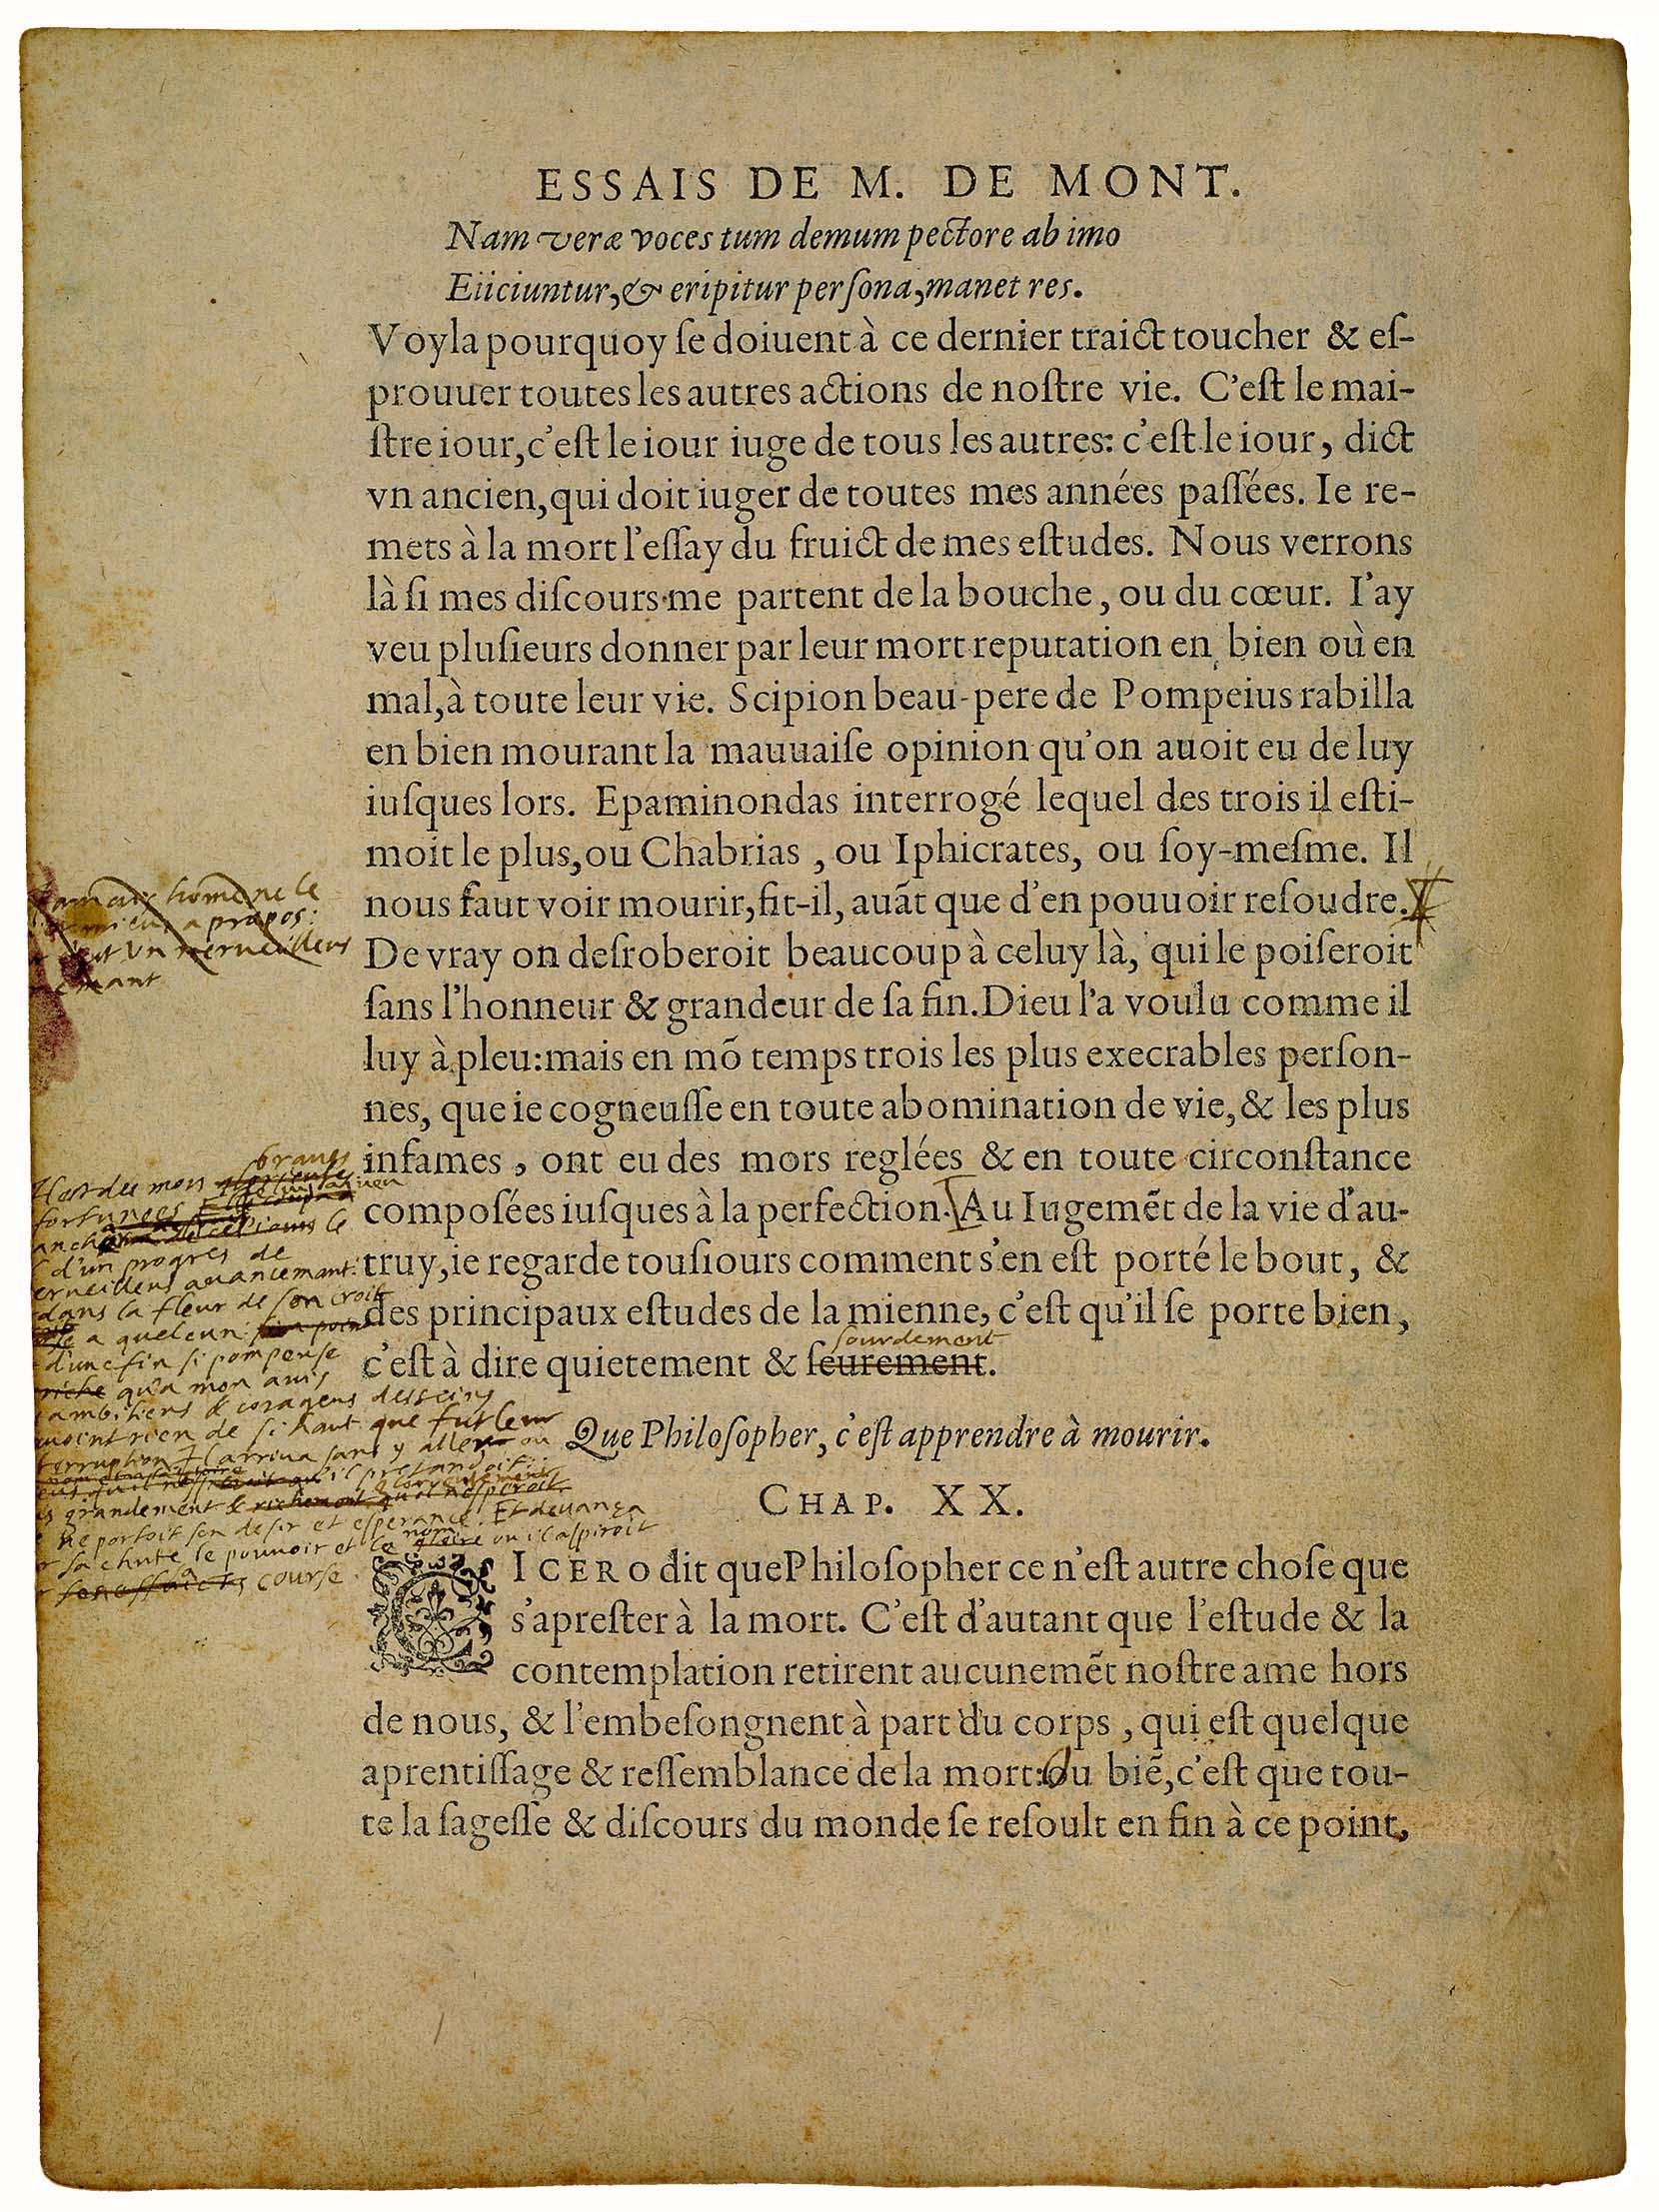 ESSAIS DE M. DE MONT.
Nam veræ voces tum demum pectore ab imo
Eiiciuntur, & eripitur perſona, manet res.
Voyla pourquoy ſe doiuent à ce dernier traict toucher & eſ-
prouuer toutes les autres actions de noſtre vie. C'eſt le mai-
ſtre iour, c'eſt le iour iuge de tous les autres: c'eſt le iour, dict
vn ancien, qui doit iuger de toutes mes années paſſées. Ie re-
mets à la mort l'eſſay du fruict de mes eſtudes. Nous verrons
là ſi mes diſcours me partent de la bouche, ou du cœur. I'ay
veu pluſieurs donner par leur mort reputation en bien où en
mal, à toute leur vie. Scipion beau-pere de Pompeius rabilla
en bien mourant la mauuaiſe opinion qu'on auoit eu de luy
iuſques lors. Epaminondas interrogé lequel des trois il eſti-
moit le plus, ou Chabrias, ou Iphicrates, ou ſoy-meſme. Il
nous faut voir mourir, fit-il, auãt que d'en pouuoir reſoudre.
De vray on deſroberoit beaucoup à celuy là, qui le poiſeroit
ſans l'honneur & grandeur de ſa fin. Dieu l'a voulu comme il
luy à pleu: mais en mõ temps trois les plus execrables perſon-
nes, que ie cogneuſſe en toute abomination de vie, & les plus
infames, ont eu des mors reglées & en toute circonſtance
compoſées iuſques à la perfection. Au Iugemẽt de la vie d'au-
truy, ie regarde touſiours comment s'en eſt porté le bout, &
des principaux eſtudes de la mienne, c'eſt qu'il ſe porte bien,
sourdement
c'eſt à dire quietement & ſeurement.
home ne le
a propos:
un merveilleus
braves
Il est des mors
fortunees
d'un progres de
avancemant:
dans la fleur de son croit
a quelcun
d'une fin si pompeuse
qu'a mon avis
ambitieus & corageus desseins
rien de si haut que fut leur
Il arriva sans y aller ou
il pretandoit
grandement &
ne portoit son desir et esperance. Et devança
sa chute le pouvoir et le nom ou il aspiroit
course
Que Philoſopher, c'eſt apprendre à mourir.
CHAP. XX.
CICERO dit que Philoſopher ce n'eſt autre choſe que
s'apreſter à la mort. C'eſt d'autant que l'eſtude & la
contemplation retirent aucunemẽt noſtre ame hors
de nous, & l'embeſongnent à part du corps, qui eſt quelque
aprentiſſage & reſſemblance de la mort: Ou biẽ, c'eſt que tou-
te la ſageſſe & diſcours du monde ſe reſoult en fin à ce point,